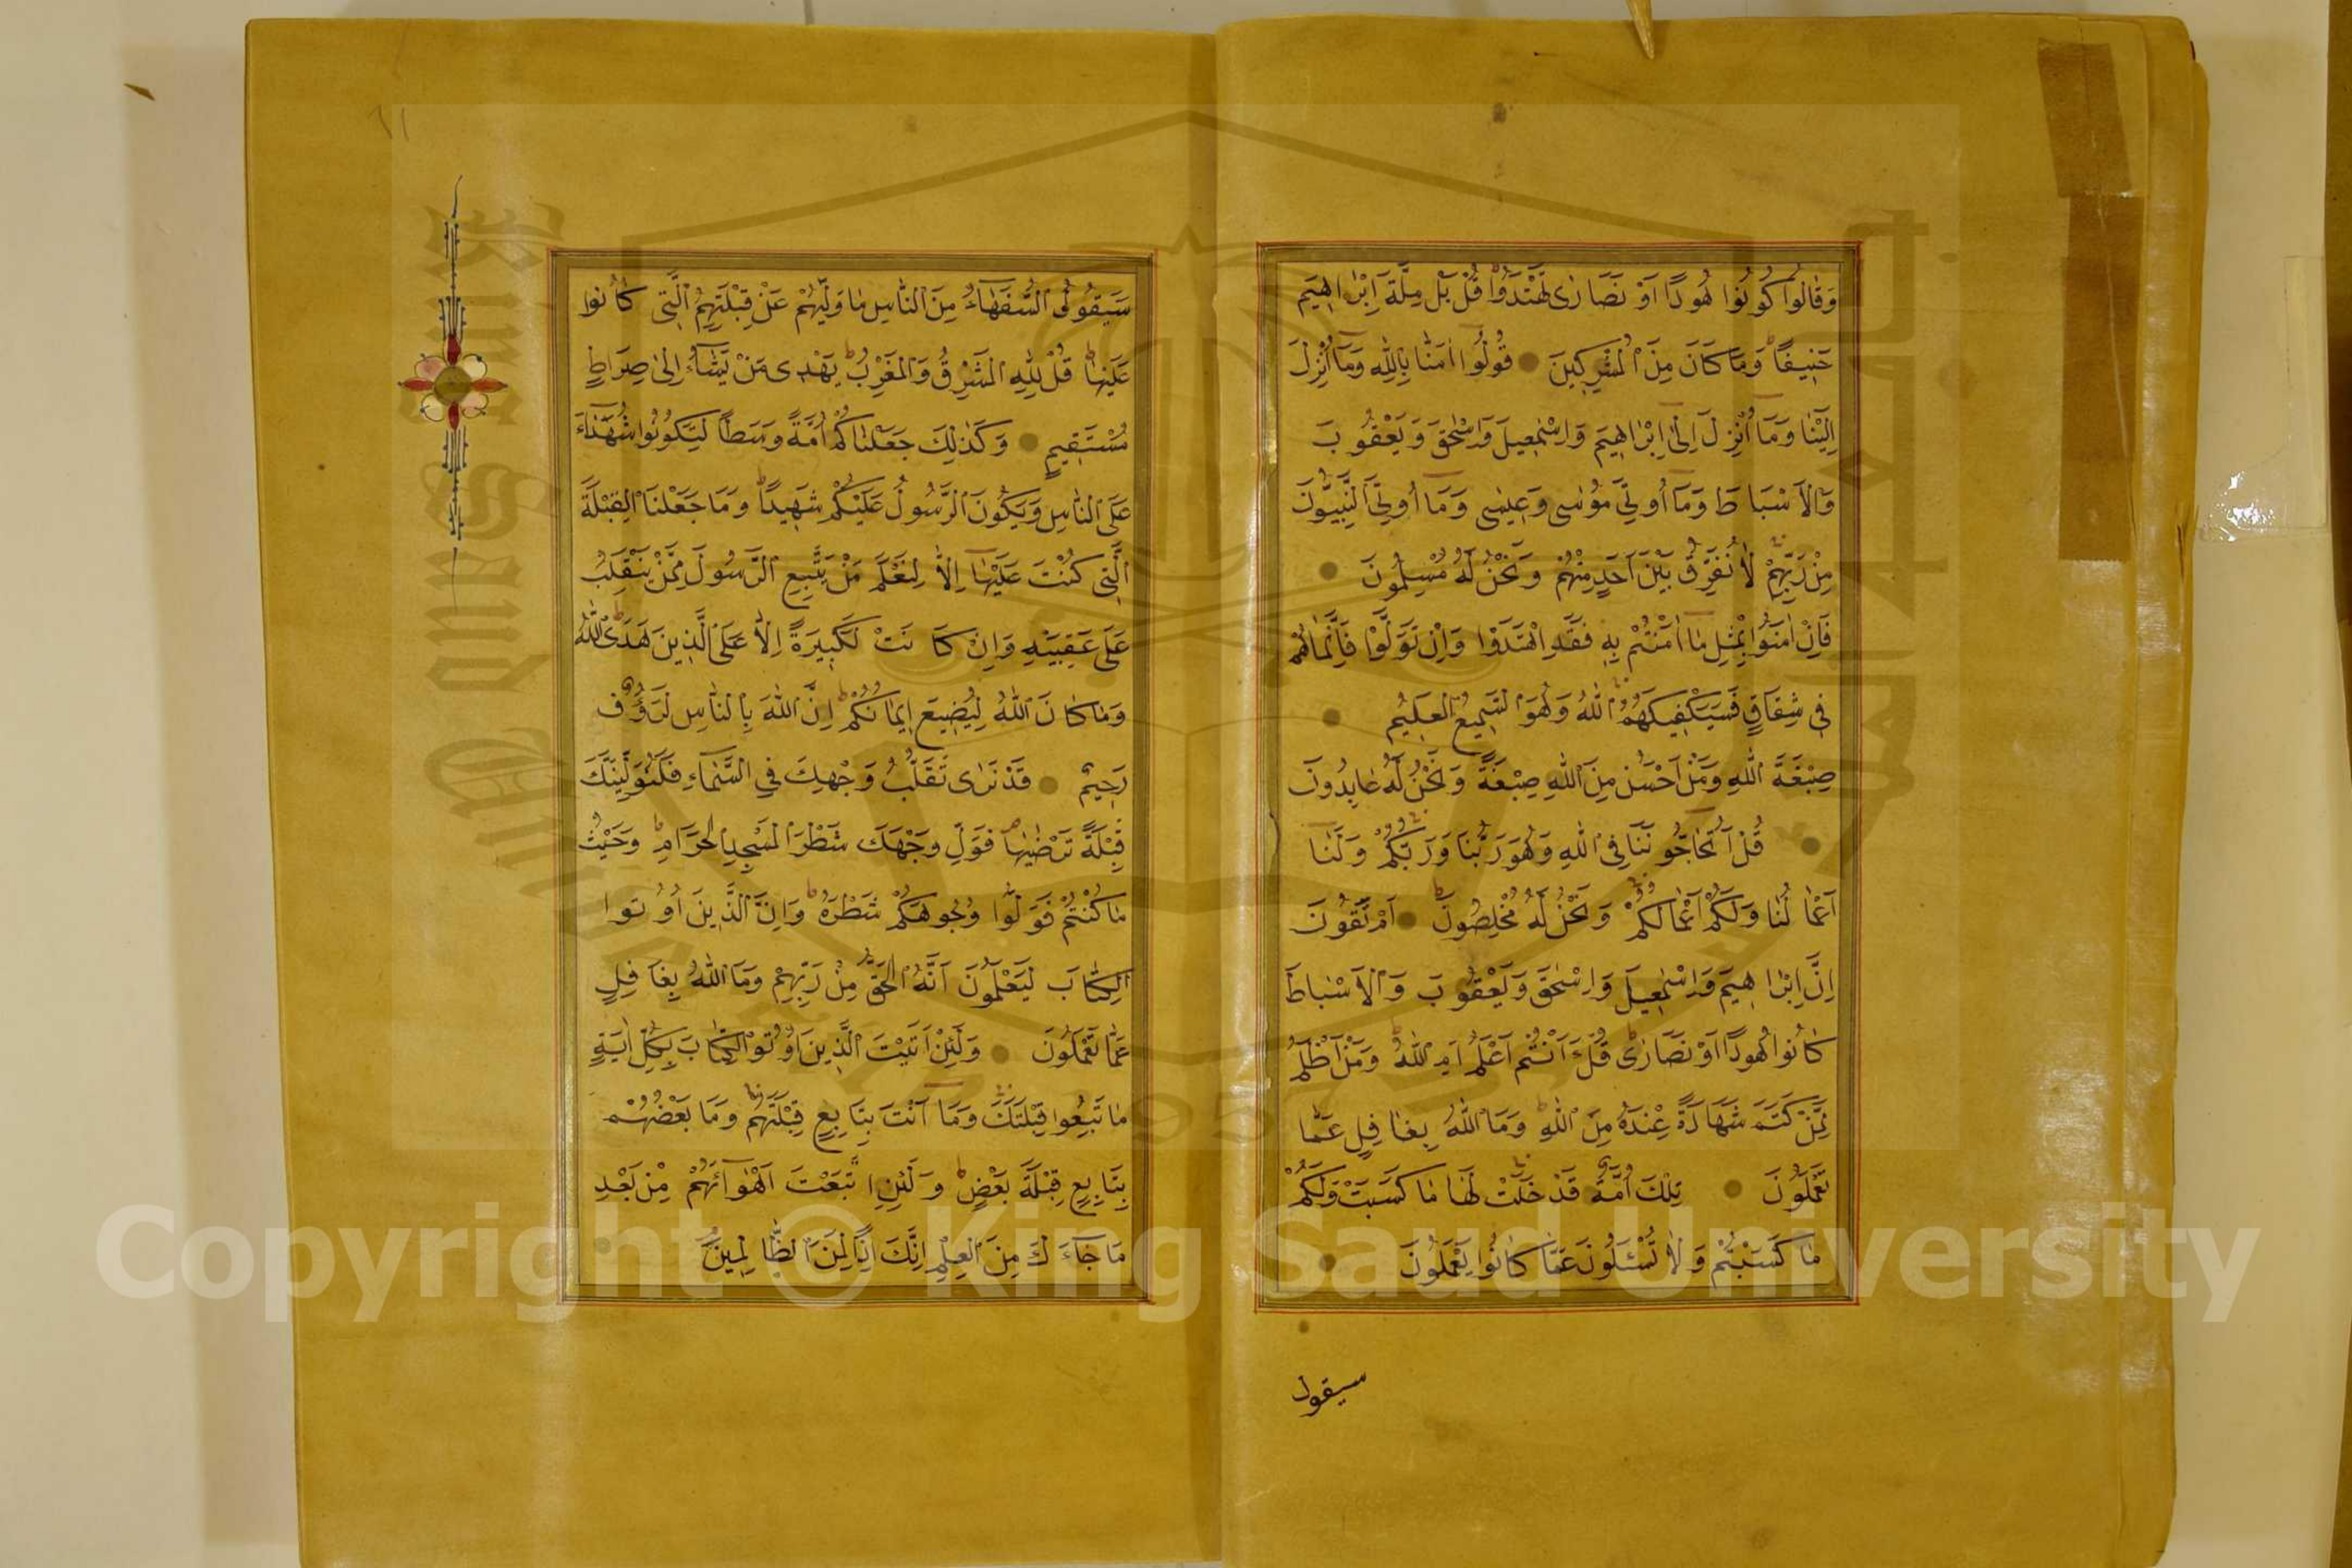 وَقَالُوا كُونُوا هُودًا اَوْ نَصَارٰى تَهْتَدُوا قُلْ بَلْ مِلَّةَ اِبْرٰاهِيمَ
حَنِيفًا وَمَا كَانَ مِنَ الْمُشْرِكِينَ قُولُوا اٰمَنَّا بِاللّٰهِ وَمَا اُنْزِلَ
اِلَيْنَا وَمَا اُنْزِلَ اِلٰى اِبْرٰاهِيمَ وَاِسْمٰعِيلَ وَاِسْحٰقَ وَيَعْقُوبَ
وَالْاَسْبَاطَ وَمَا اُوتِيَ مُوسٰى وَعِيسٰى وَمَا اُوتِيَ النَّبِيُّونَ
مِنْ رَبِّهِمْ لَا نُفَرِّقُ بَيْنَ اَحَدٍ مِنْهُمْ وَنَحْنُ لَهُ مُسْلِمُونَ
فَاِنْ اٰمَنُوا بِمِثْلِ مَا اٰمَنْتُمْ بِهِ فَقَدِ اهْتَدَوْا وَاِنْ تَوَلَّوْا فَاِنَّمَا هُمْ
فِي شِقَاقٍ فَسَيَكْفِيكَهُمُ اللّٰهُ وَهُوَ السَّمِيعُ الْعَلِيمُ
صِبْغَةَ اللّٰهِ وَمَنْ اَحْسَنُ مِنَ اللّٰهِ صِبْغَةً وَنَحْنُ لَهُ عَابِدُونَ
قُلْ اَتُحَاجُّونَنَا فِي اللّٰهِ وَهُوَ رَبُّنَا وَرَبُّكُمْ وَلَنَا
اَعْمَالُنَا وَلَكُمْ اَعْمَالُكُمْ وَنَحْنُ لَهُ مُخْلِصُونَ اَمْ تَقُولُونَ
اِنَّ اِبْرٰاهِيمَ وَاِسْمٰعِيلَ وَاِسْحٰقَ وَيَعْقُوبَ وَالْاَسْبَاطَ
كَانُوا هُودًا اَوْ نَصَارٰى قُلْ ءَاَنْتُمْ اَعْلَمُ اَمِ اللّٰهُ وَمَنْ اَظْلَمُ
مِمَّنْ كَتَمَ شَهَادَةً عِنْدَهُ مِنَ اللّٰهِ وَمَا اللّٰهُ بِغَافِلٍ عَمَّا
تَعْمَلُونَ تِلْكَ اُمَّةٌ قَدْ خَلَتْ لَهَا مَا كَسَبَتْ وَلَكُمْ
مَا كَسَبْتُمْ وَلَا تُسْئَلُونَ عَمَّا كَانُوا يَعْمَلُونَ
سيقول
سَيَقُولُ السُّفَهَاءُ مِنَ النَّاسِ مَا وَلّٰيهُمْ عَنْ قِبْلَتِهِمُ الَّتِي كَانُوا
عَلَيْهَا قُلْ لِلّٰهِ الْمَشْرِقُ وَالْمَغْرِبُ يَهْدِي مَنْ يَشَاءُ اِلٰى صِرَاطٍ
مُسْتَقِيمٍ وَكَذٰلِكَ جَعَلْنَاكُمْ اُمَّةً وَسَطًا لِتَكُونُوا شُهَدَاءَ
عَلَى النَّاسِ وَيَكُونَ الرَّسُولُ عَلَيْكُمْ شَهِيدًا وَمَا جَعَلْنَا الْقِبْلَةَ
الَّتِي كُنْتَ عَلَيْهَا اِلَّا لِنَعْلَمَ مَنْ يَتَّبِعُ الرَّسُولَ مِمَّنْ يَنْقَلِبُ
عَلٰى عَقِبَيْهِ وَاِنْ كَانَتْ لَكَبِيرَةً اِلَّا عَلَى الَّذِينَ هَدَى اللّٰهُ
وَمَا كَانَ اللّٰهُ لِيُضِيعَ اِيمَانَكُمْ اِنَّ اللّٰهَ بِالنَّاسِ لَرَؤُفٌ
رَحِيمٌ قَدْ نَرٰى تَقَلُّبَ وَجْهِكَ فِي السَّمَاءِ فَلَنُوَلِّيَنَّكَ
قِبْلَةً تَرْضٰيهَا فَوَلِّ وَجْهَكَ شَطْرَ الْمَسْجِدِ الْحَرَامِ وَحَيْثُ
مَا كُنْتُمْ فَوَلُّوا وُجُوهَكُمْ شَطْرَهُ وَاِنَّ الَّذِينَ اُوتُوا
الْكِتَابَ لَيَعْلَمُونَ اَنَّهُ الْحَقُّ مِنْ رَبِّهِمْ وَمَا اللّٰهُ بِغَافِلٍ
عَمَّا تَعْمَلُونَ وَلَئِنْ اَتَيْتَ الَّذِينَ اُوتُوا الْكِتَابَ بِكُلِّ اٰيَةٍ
مَا تَبِعُوا قِبْلَتَكَ وَمَا اَنْتَ بِتَابِعٍ قِبْلَتَهُمْ وَمَا بَعْضُهُمْ
بِتَابِعٍ قِبْلَةَ بَعْضٍ وَلَئِنِ اتَّبَعْتَ اَهْوَائَهُمْ مِنْ بَعْدِ
مَا جَاءَكَ مِنَ الْعِلْمِ اِنَّكَ اِذًا لَمِنَ الظَّالِمِينَ
Copyright © King Saud University